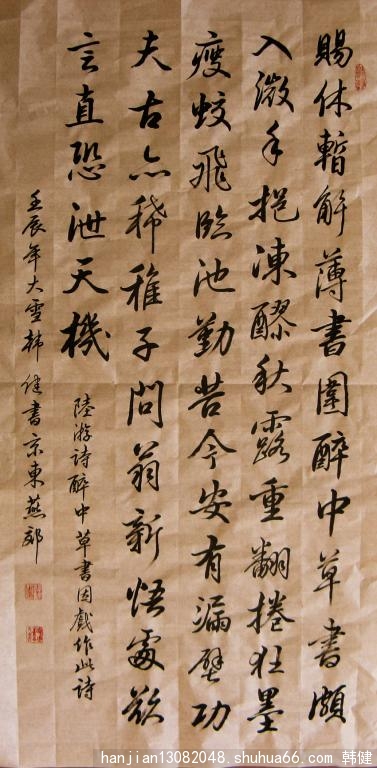 賜休暫解薄書圍醉中草書頗
入微手挹凍醪秋露重翻捲狂墨
瘦蛟飛臨池勤苦今安有漏壁功
夫古亦稀稚子問翁新悟處欲
言直恐泄天機
陸游詩醉中草書因戲作此詩
壬辰年大雪韩健書京東燕郊
hanjian13082048.shuhua66.com 韩健